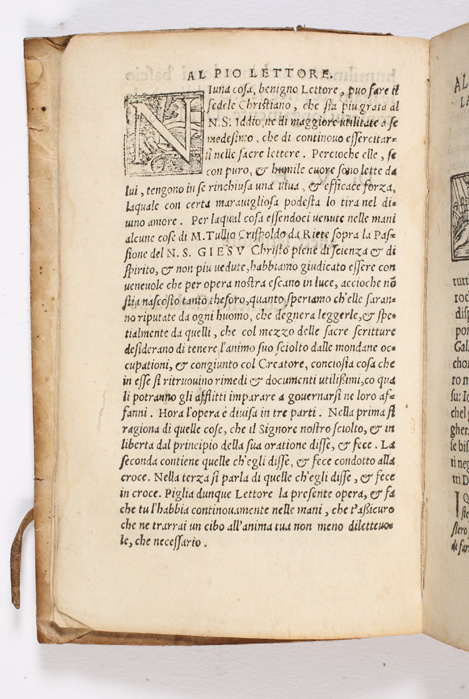 AL PIO LETTORE.
Niuna cosa, benigno Lettore, puo fare il
fedele Christiano, che sia piu grata al
N.S. Iddio, ne di maggiore utilitate a se
medesimo, che di continovo essercitar-
si nelle sacre lettere. Percioche elle, se
con puro, & humile cuore sono lette da
lui, tengono in se rinchiusa una viua, & efficace forza,
laquale con certa maravigliosa podestà lo tira nel di-
uino amore. Per laqual cosa essendoci venute nelle mani
alcune cose di M. Tullio Crispoldo da Riete sopra la Pas-
sione del N.S. GIESV Christo piene di scienza & di
spirito, & non piu vedute, habbiamo giudicato essere con
uenevole che per opera nostra escano in luce, accioche nō
stia nascosto tanto thesoro, quanto speriamo ch'elle saran-
no riputate da ogni huomo, che degnera leggerle, & spe-
tialmente da quelli, che col mezzo delle sacre scritture
desiderano di tenere l'animo suo sciolto dalle mondane oc-
cupationi, & congiunto col Creatore, conciosia cosa che
in esse si ritruovino rimedi & documenti utilissimi, co qua
li potranno gli afflitti imparare a governarsi ne loro af-
fanni. Hora l'opera è divisa in tre parti. Nella prima si
ragiona di quelle cose, che il Signore nostro sciolto, & in
liberta dal principio della sua oratione disse, & fece. La
seconda contiene quelle ch'egli disse, & fece condotto alla
croce. Nella terza si parla di quelle ch'egli disse, & fece
in croce. Piglia dunque Lettore la presente opera, & fa
che tu l'habbia continouamente nelle mani, che t'assicuro
che ne trarrai un cibo all'anima tua non meno dilettevo-
le, che necessario.